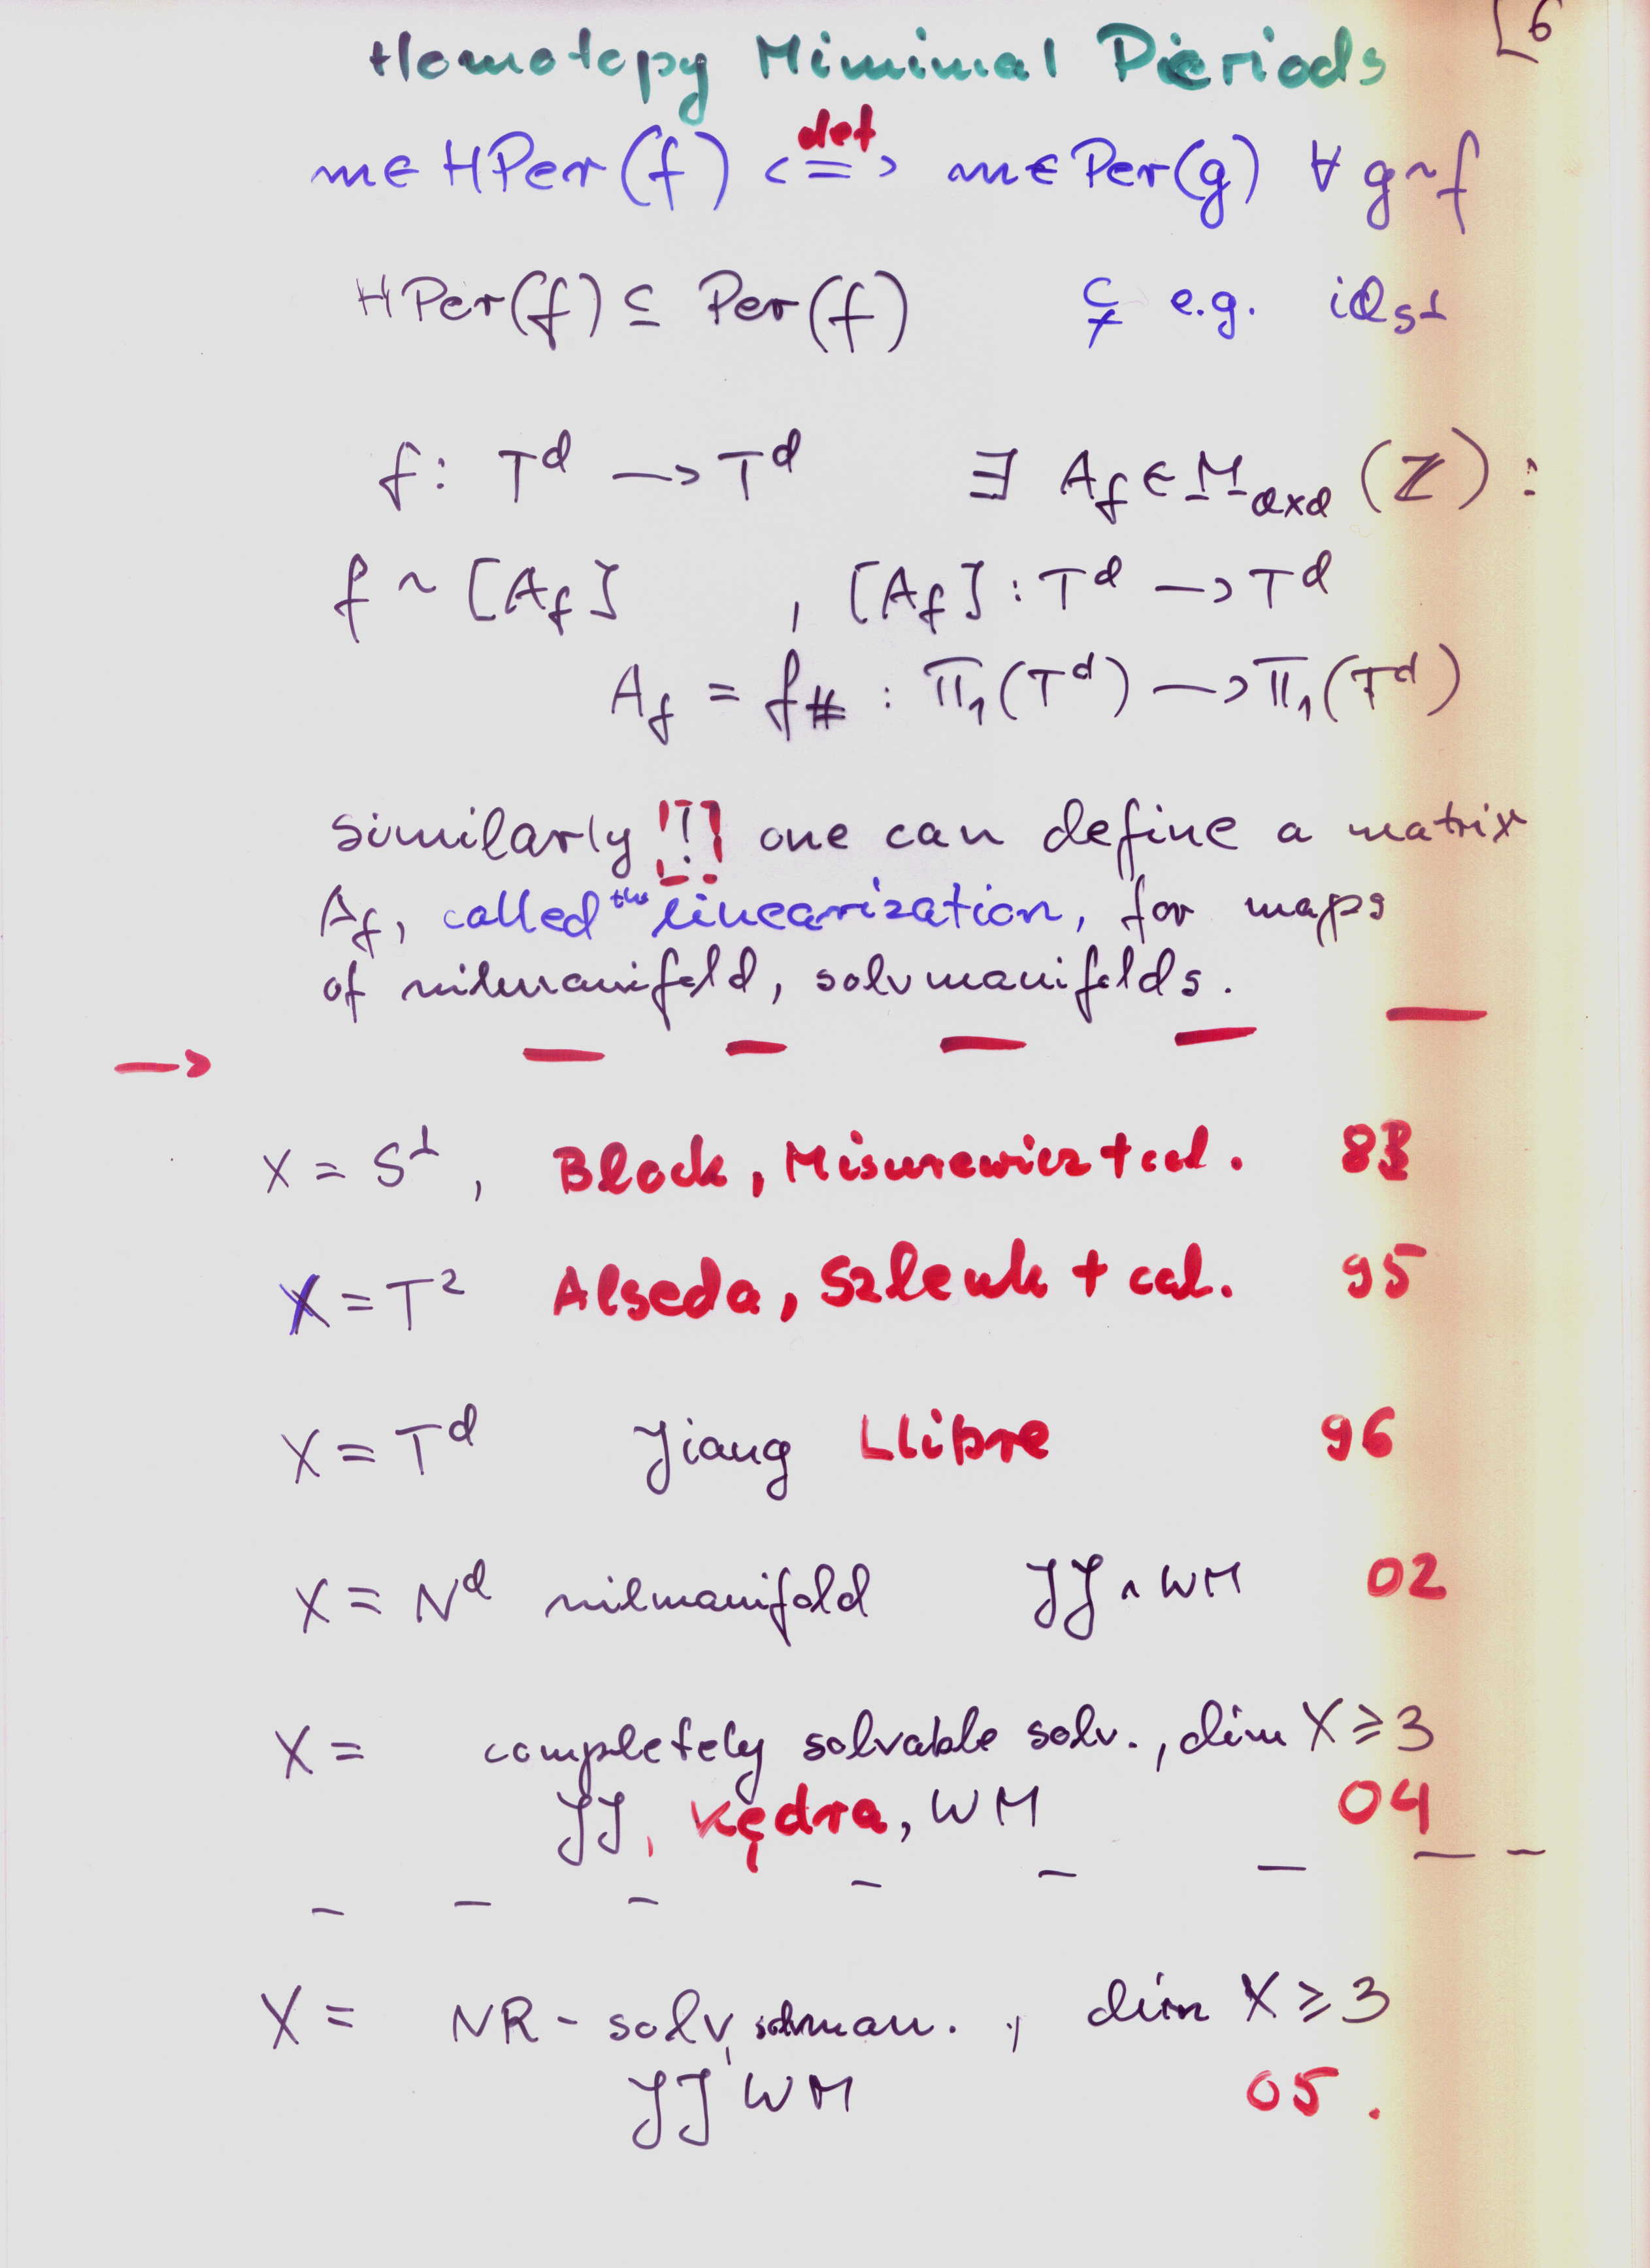 6
Homotopy Minimal Periods
def
m ∈ HPer(f) <=> m ∈ Per(g) ∀ g ~ f
HPer(f) ⊆ Per(f) ⊊ e.g. id_S1
f: T^d → T^d ∃ A_f ∈ M_dxd (Z) :
f ~ [A_f] , [A_f] : T^d → T^d
A_f = f_# : π_1(T^d) → π_1(T^d)
similarly !!! one can define a matrix
A_f, called the linearization, for maps
of nilmanifold, solvmanifolds.
→
X = S^1, Block, Misurewicz + col. 83
X = T^2 Alseda, Szlenk + col. 95
X = T^d Jiang Llibre 96
X = N^d nilmanifold JJ ∧ WM 02
X = completely solvable solv., dim X ≥ 3
JJ, Kędra, WM 04
X = NR - solv. solvman. , dim X ≥ 3
JJ, WM 05.